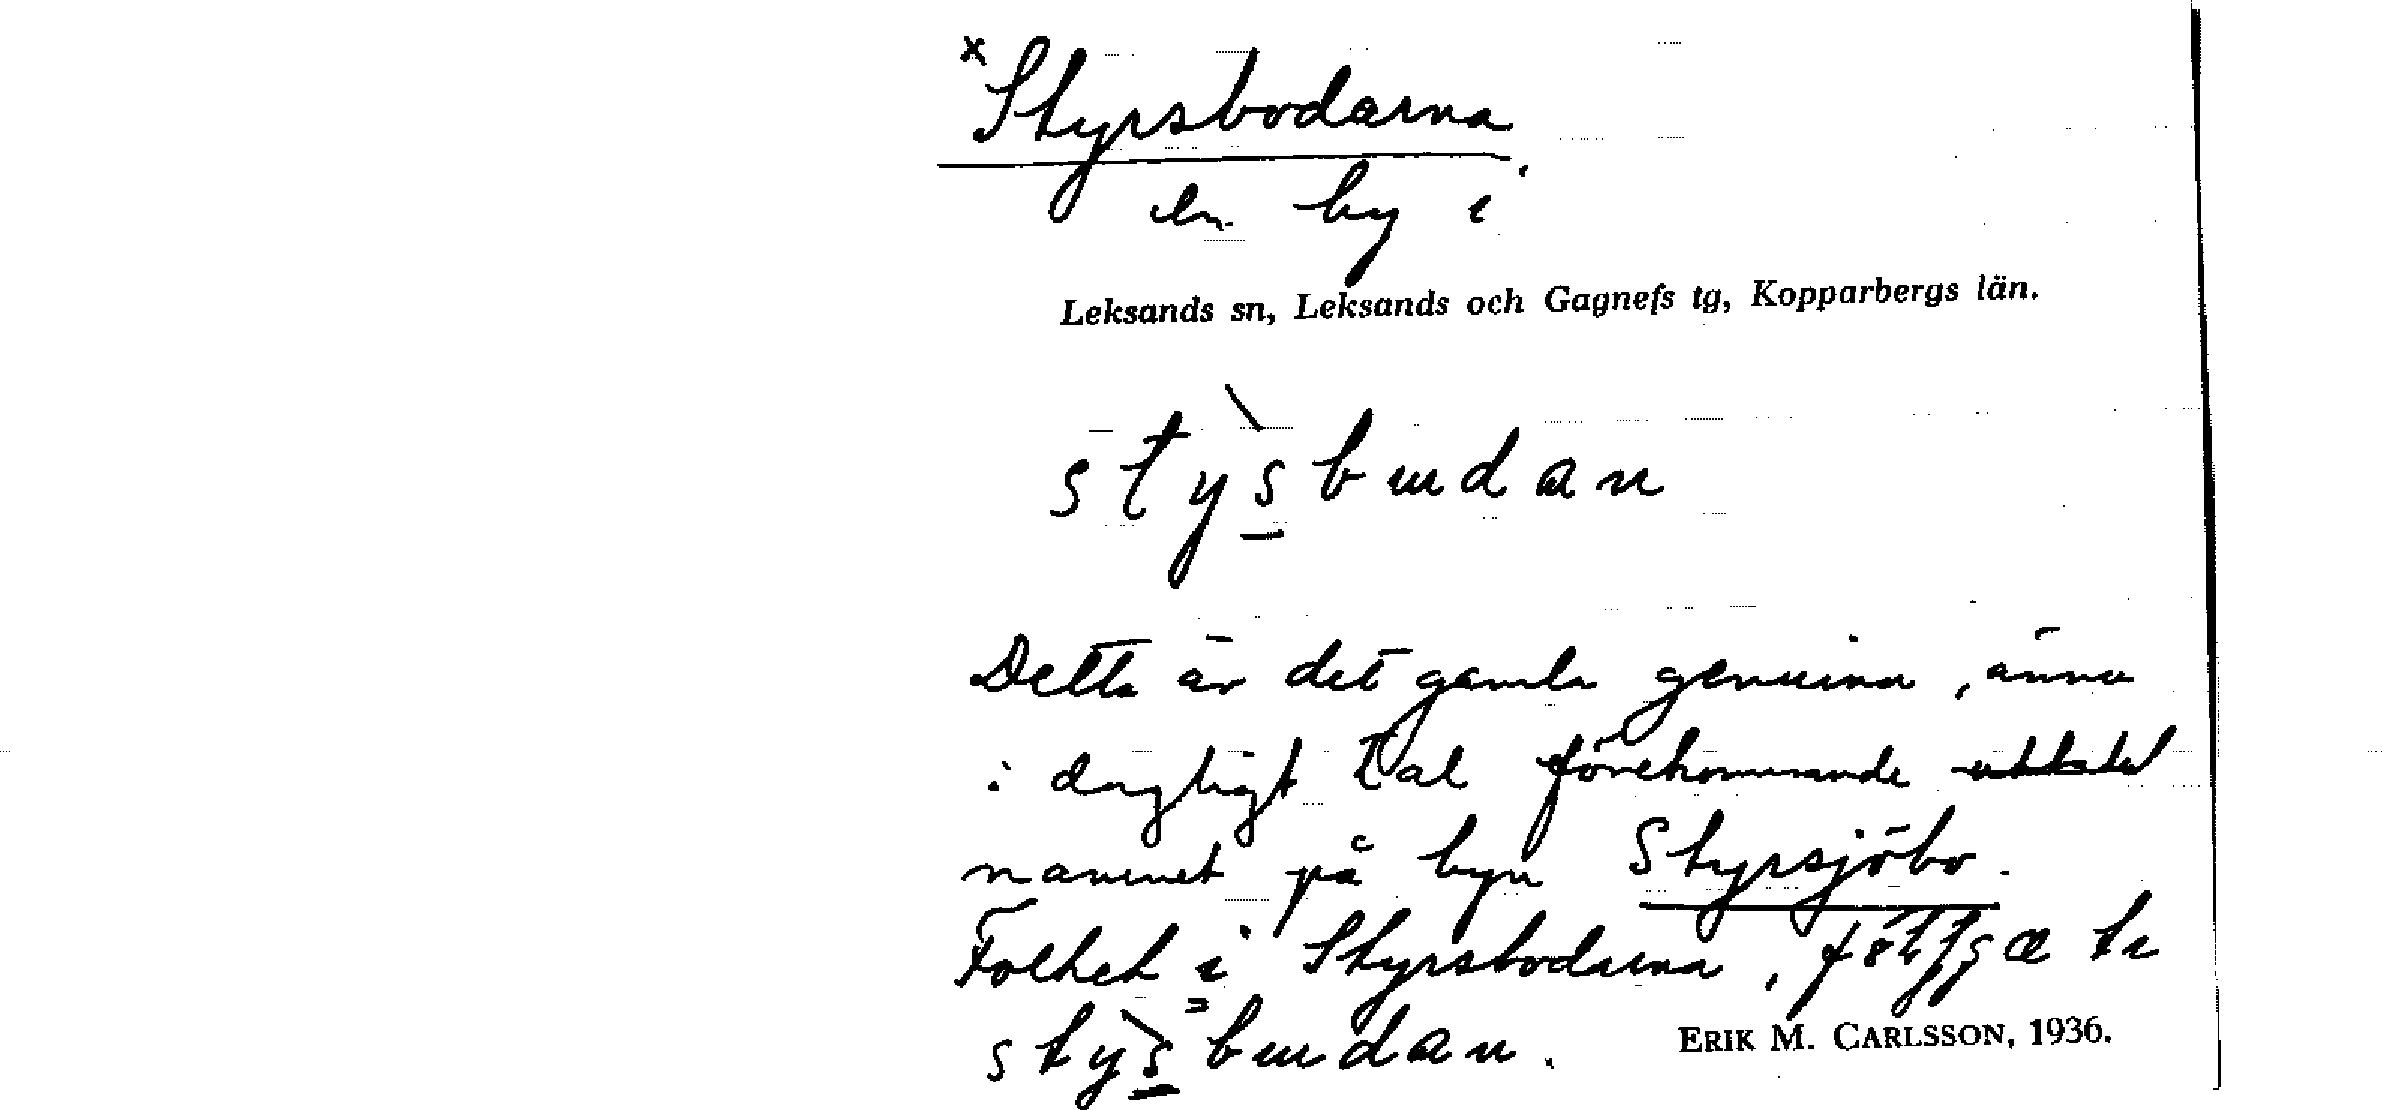 x Styrsbodarna
en by i
Leksands sn, Leksands och Gagnefs tg, Kopparbergs län.
stysbudan
Detta är det gamla genuina, ännu
i dagligt tal förekommande uttalet
namnet på byn Styrsjöbo.
Folket i Styrsbodarna,
stysbudan.
ERIK M. CARLSSON, 1936.